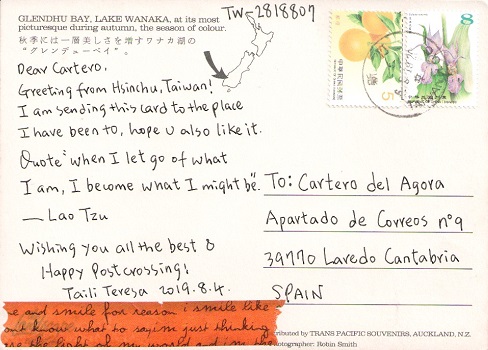 GLENDHU BAY, LAKE WANAKA, at its most
picturesque during autumn, the season of colour.
秋季には一層美しさを増すワナカ湖の
“グレンデューベイ”。
TW-2818807
8
5
中華民國郵票
Dear Cartero,
Greeting from Hsinchu, Taiwan!
I am sending this card to the place
I have been to, hope u also like it.
Quote "when I let go of what
I am, I become what I might be".
— Lao Tzu
Wishing you all the best &
Happy Postcrossing!
Taili Teresa 2019.8.4.
To: Cartero del Agora
Apartado de Correos nº9
39770 Laredo Cantabria
SPAIN
e and smile for reason i smile like
ont know what to say im just thinking
the light of my world and i'm the
tributed by TRANS PACIFIC SOUVENIRS, AUCKLAND, N.Z.
hotographer: Robin Smith